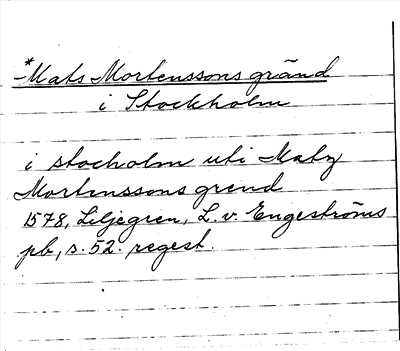 *Mats Mortenssons gränd
i Stockholm
i stocholm uti Matz
Mortenssons grend
1578, Liljegren, L. v. Engeströms
pb, s. 52. regest.